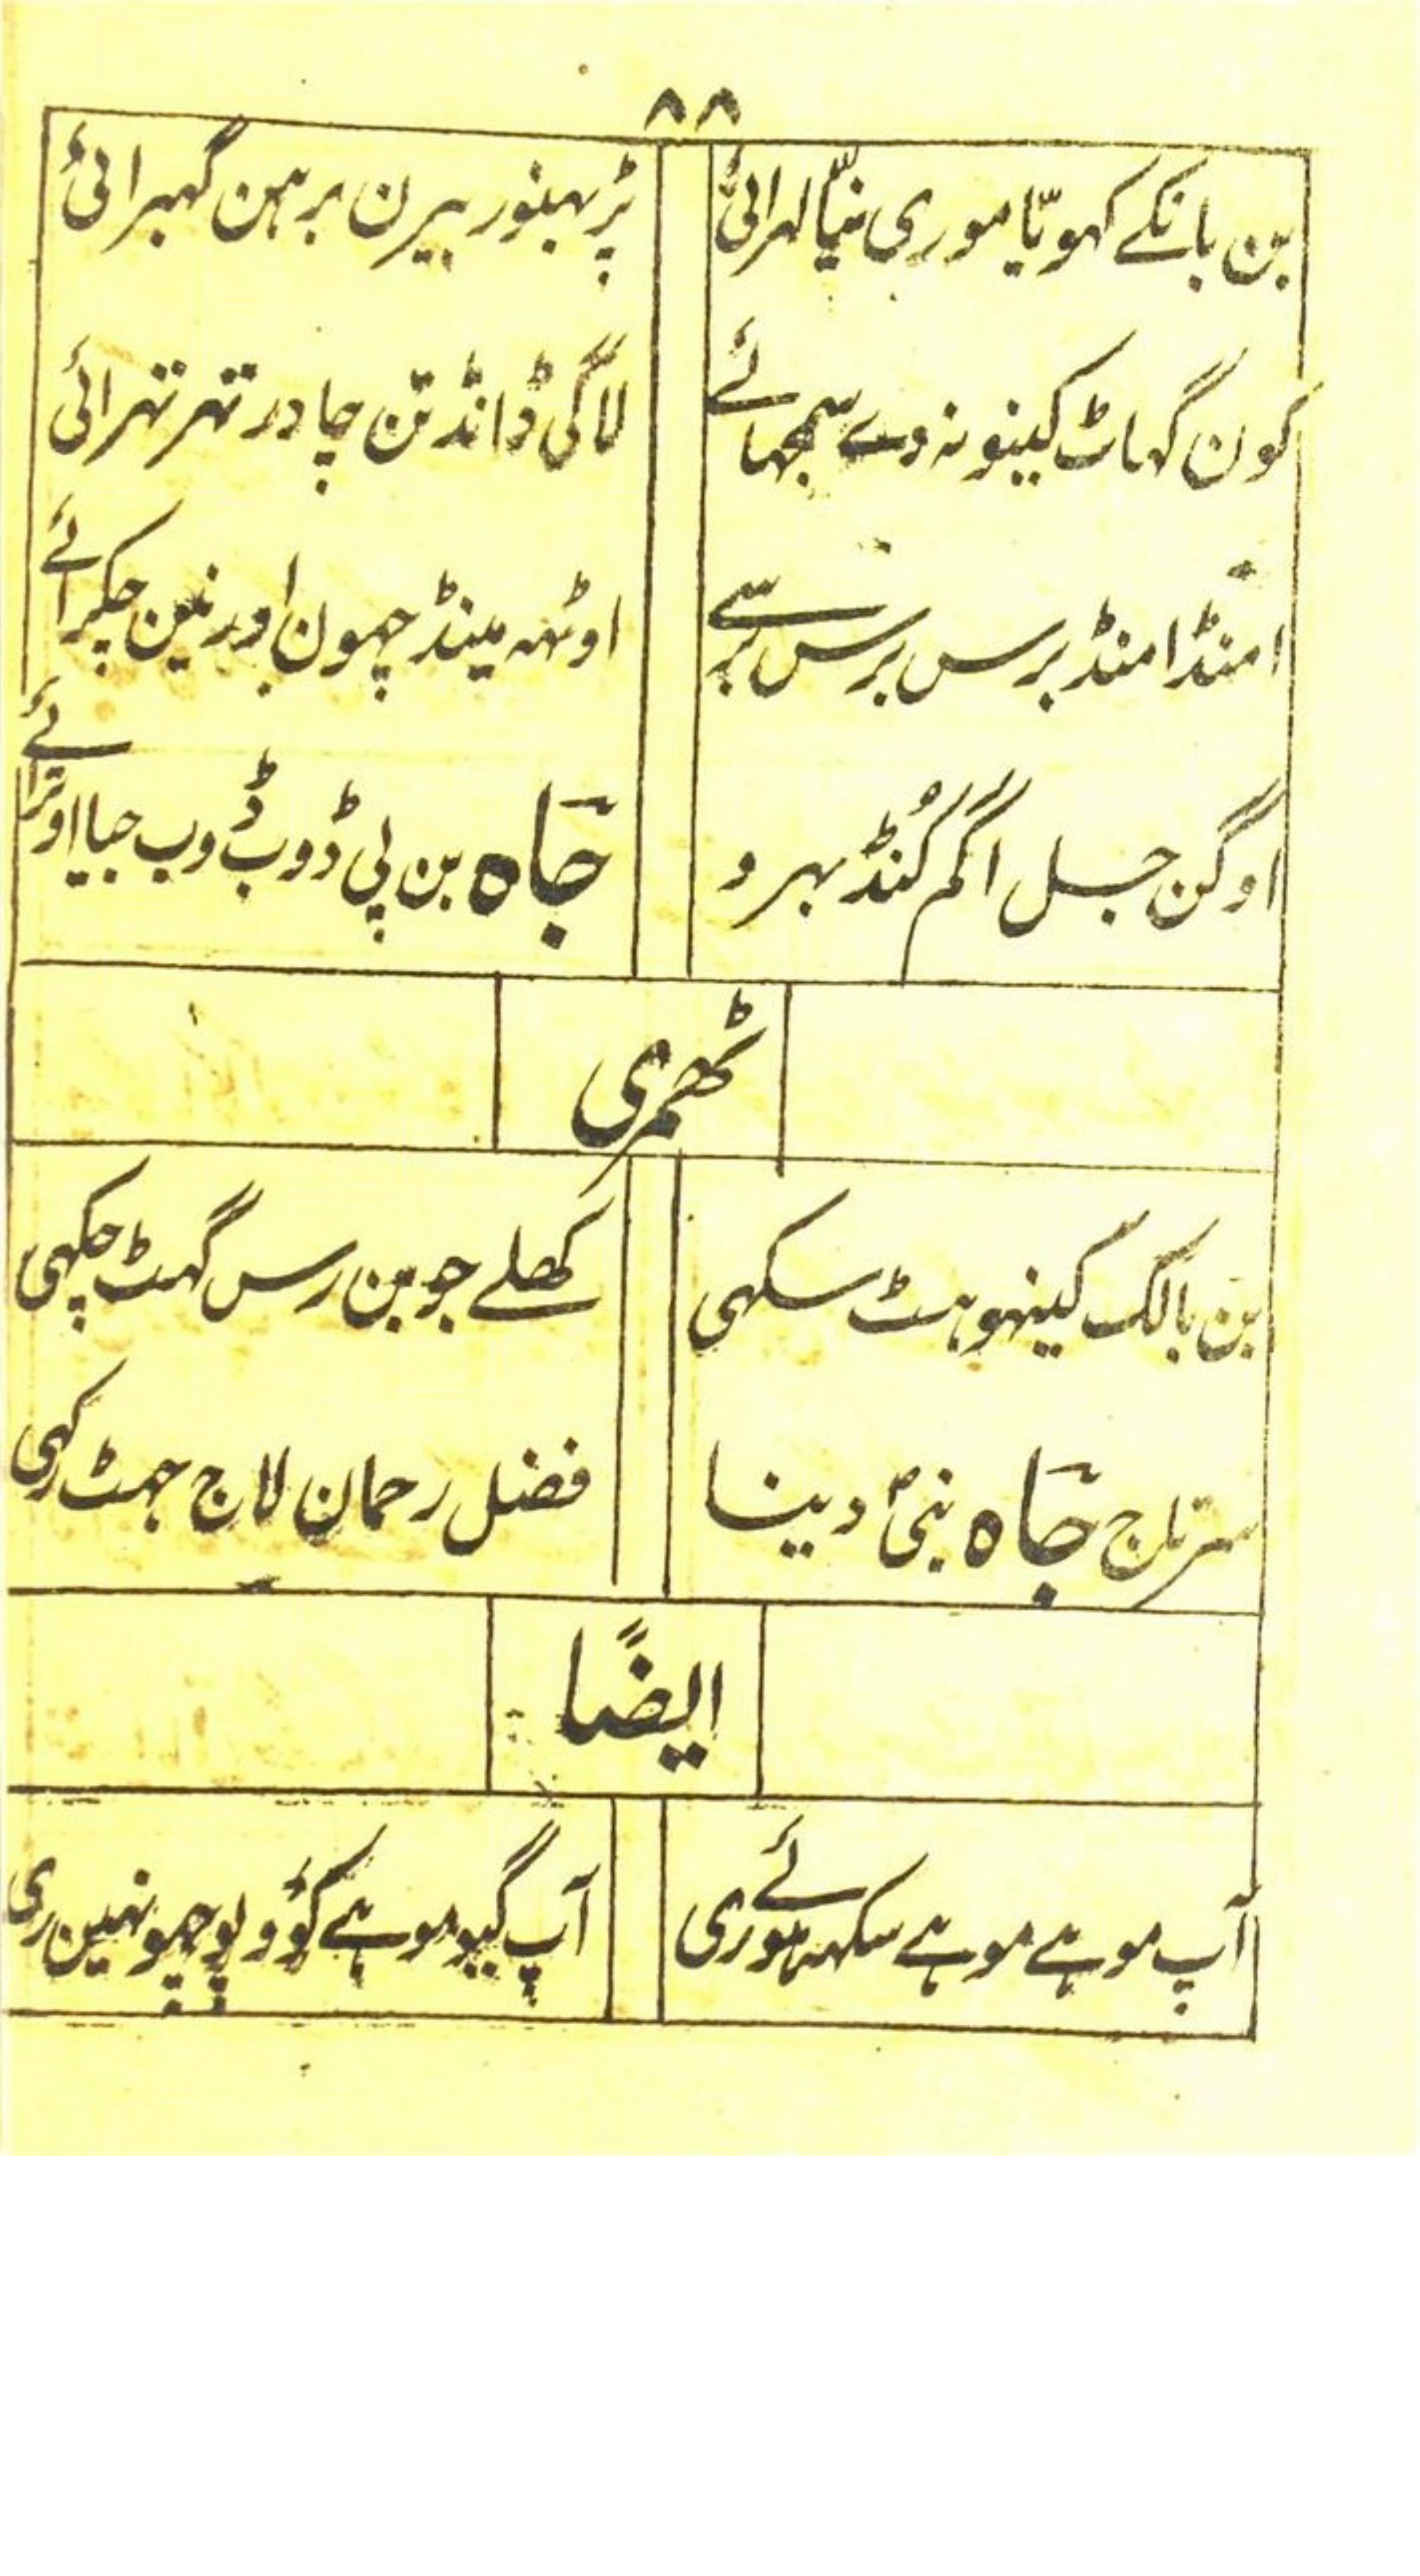 ۸۸
بن بانکے کہویّا موری نیّا لہرائی
پڑ بہنور بیرن برہن گہبرائی
کون گہاٹ کینو نہ دے سجہائے
لاگی ڈانڈ تن چادر تہر تہرائی
امنڈ امنڈ برس برس برسے
اوٹہہ مینڈ چہون اور نین چکرائے
اوگن جل اگم کُنڈ بہرو
جاہ بن پی ڈوب ڈوب جیا اوترائے
ٹھمری
بن بالک کینہو ہٹ سکہی
کھلے جوبن رس گہٹ چکہی
سرتاج جاہ نبی دینا
فضل رحمان لاج جہٹ رکہی
ایضًا
آپ موہے موہے سکہہ موری
آپ گیو موہے کوؤ پوچہو نہین ری